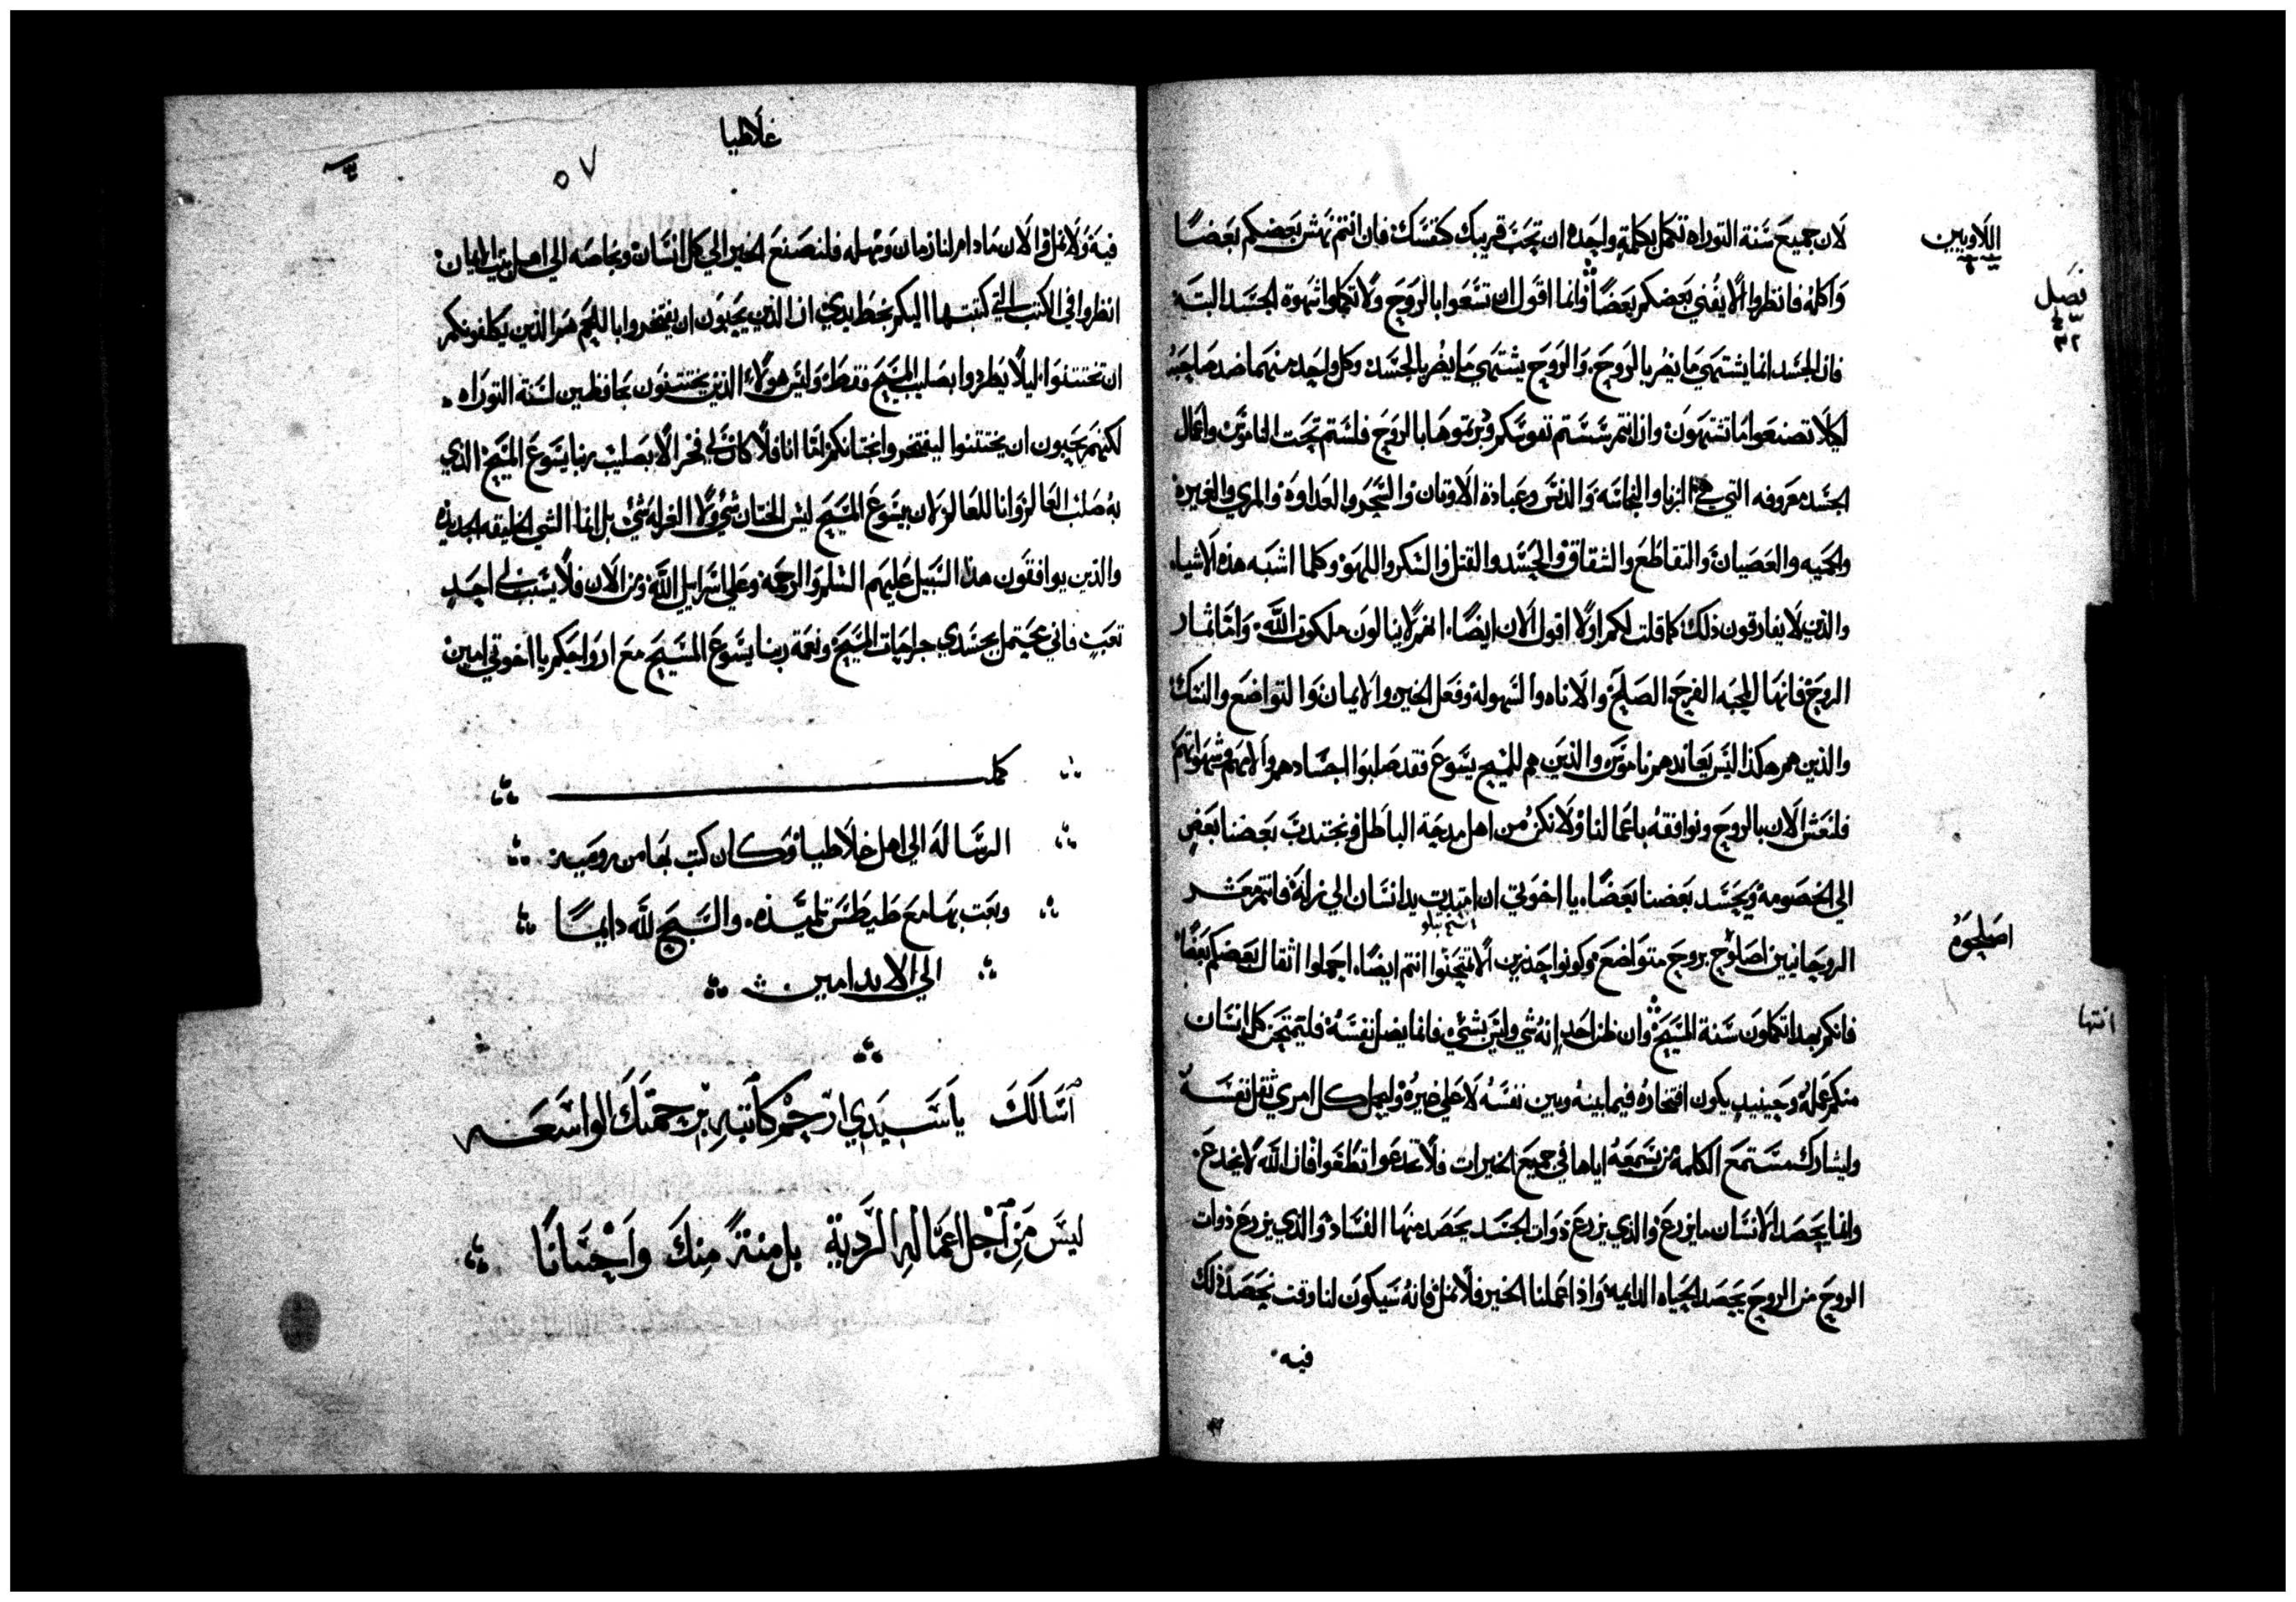 اللاويين
فصل
٣٢
لان جميع سنة التوراه تكمل بكلمة واحده ان تحب قريبك كنفسك فان انتم نهش بعضكم بعضا
واكله فانظروا الا يفني بعضكم بعضا وانما اقول ان تسعوا بالروح ولا تكملوا شهوة الجسد البتة
فان الجسد انما يشتهي ما يضر بالروح والروح يشتهي ما يضر بالجسد وكل واحد منهما ضد صاحبه
لكيلا تصنعوا ما تشتهون وان انتم سستم نفوسكم ودبرتموها بالروح فلستم تحت الناموس واعمال
الجسد معروفه التي هي الزنا والنجاسه والدنس وعبادة الاوثان والسحر والعداوه والمري والغيره
والحميه والعصيان والتقاطع والشقاق والحسد والقتل والسكر واللهو وكلما اشبه هذه الاشياء
والذين لا يفارقون ذلك كما قلت لكم اولا اقول الان ايضا انهم لا ينالون ملكوت الله واما ثمار
الروح فانها المحبه الفرح الصلح والاناه والسهوله وفعل الخير والايمان والتواضع والنسك
والذين هم هكذا ليس يعاندهم ناموس والذين هم للمسيح يسوع فقد صلبوا اجسادهم والامهم وشهواتهم
فلنعش الان بالروح ونوافقه باعمالنا ولا نكن من اهل مدحة الباطل ونجتدب بعضنا بعض
الي الخصومة ويحسد بعضنا بعضا يا اخوتي ان امتديت يد انسان الي زلة فانتم معشر
اصلحوه
الروحانيين اصلوح بروح متواضع وكونوا حذرين الا تمتحنوا انتم ايضا احملوا اثقال بعضكم بعضا
انتها
فانكم بهذا تكملون سنة المسيح وان ظن احد انه شي وليس بشي فانما يضل نفسه فليمتحن كل انسان
منكم عمله وحينيد يكون افتخاره فيما بينه وبين نفسه لا علي غيره وليحمل كل امري ثقل نفسه
وليشارك مستمع الكلمه من يسمعه اياها في جميع الخيرات فلا تخدعوا تطغوا فان الله لا يخدع
وانما يحصد الانسان ما يزرع والذي يزرع ذوات الجسد يحصد منها الفساد والذي يزرع ذوات
الروح من الروح يحصد الحياه الدايمه واذا عملنا الخير فلا نمل فانه سيكون لنا وقت نحصد ذلك
فيه
غلاطيا
٥٧
فيه ولا نمل والان ما دام لنا زمان ومهله فلنصنع الخير الي كل انسان وبخاصه الي اهل بيت الايمان
انظروا في الكتب التي كتبتها اليكم بخط يدي ان الذين يحبون ان يفتخروا باللحم هم الذين يكلفونكم
ان تختتنوا ليلا يطردوا بصليب المسيح فقط وليس هولاء الذين يختتنون بحافظين لسنة التوراه
لكنهم يحبون ان يختتنوا ليفتخروا بختانكم اما انا فلا كان لي فخر الا بصليب ربنا يسوع المسيح الذي
به صلب العالم لي وانا للعالم لان بيسوع المسيح ليس الختان شي ولا الغرله شي بل انما الشي الخليقه الجديده
والذين يوافقون هذا السبيل عليهم السلم والرحمه وعلي اسراييل الله ومن الان فلا يسبب لي احد
تعب فاني محتمل بجسدي جراحات المسيح ونعمة ربنا يسوع المسيح مع ارواحكم يا اخوتي امين
كملـ
الرساله الي اهل خلاطيا وكان كتب بها من روميه
وبعت بها مع طيطس تلميذه والسبح لله دايما
الي الابد امين
اسالك يا سيدي ارحم كاتبه برحمتك الواسعه
ليس من اجل اعماله الردية بل منة منك واحسانا